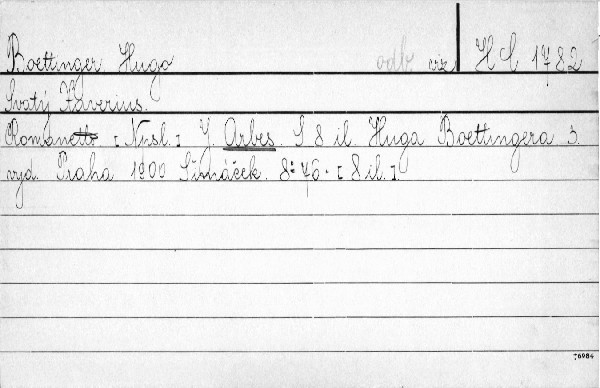 Boettinger Hugo odb viz H C 1782
Svatý Xaverius.
Romanetto [Nusl.] J. Arbes. S 8 il. Huga Boettingera 3.
vyd. Praha 1900 Šimáček. 8° 76. [8 il.].
76984